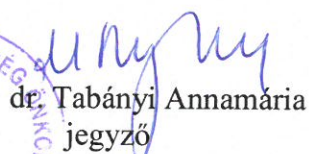 dr. Tabányi Annamária
jegyző